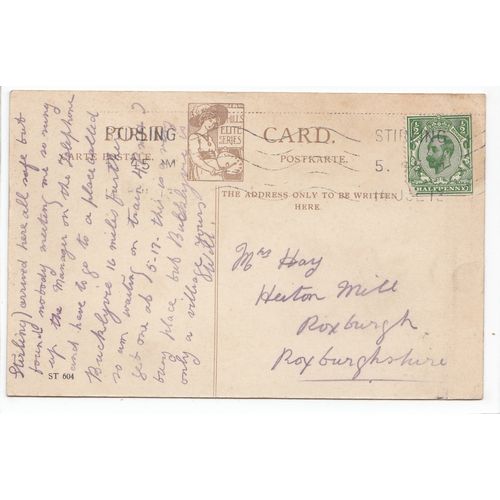 Stirling) arrived here all safe but
found nobody meeting me so rung
up the Manager on the telephone
and have to go to a place called
Bucklyvie 16 miles further
so am waiting on train
get one at 5-17. this is a
busy place but Bucklyvie
only a village yours
POST CARD.
CARTE POSTALE.
POSTKARTE.
HILLS
ELITE
SERIES
THE ADDRESS ONLY TO BE WRITTEN
HERE.
STIRLING
5.
STIRLING
HALFPENNY
Mrs Hay
Heiton Mill
Roxburgh
Roxburghshire
ST 604